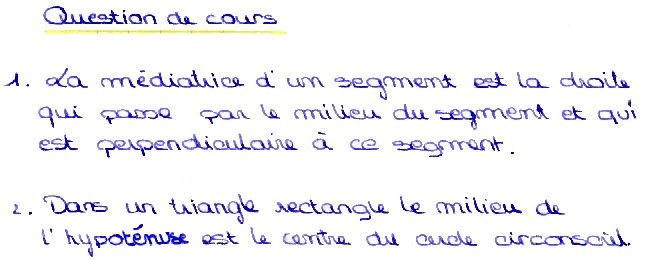 Question de cours
1. La médiatrice d'un segment est la droite
qui passe par le milieu du segment et qui
est perpendiculaire à ce segment.
2. Dans un triangle rectangle le milieu de
l'hypoténuse est le centre du cercle circonscrit.